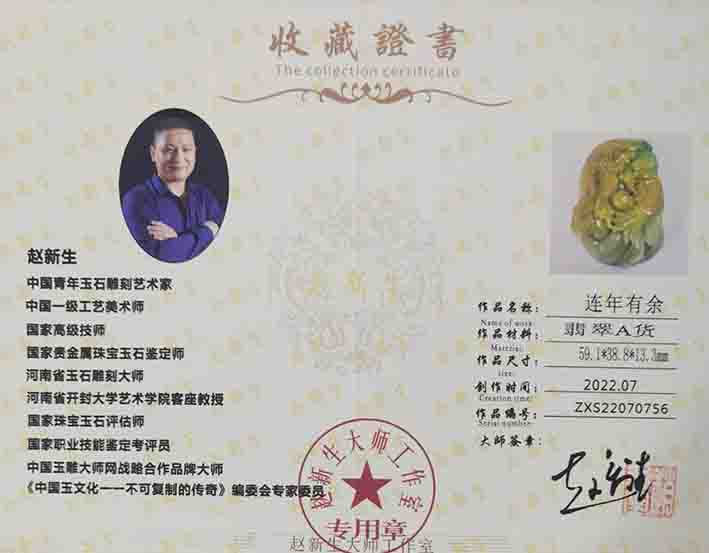 收藏證書
The collection certificate
赵新生
中国青年玉石雕刻艺术家
中国一级工艺美术师
国家高级技师
国家贵金属珠宝玉石鉴定师
河南省玉石雕刻大师
河南省开封大学艺术学院客座教授
国家珠宝玉石评估师
国家职业技能鉴定考评员
中国玉雕大师网战略合作品牌大师
《中国玉文化一一不可复制的传奇》编委会专家委员
赵新生
作品名称： 连年有余
Name of work:
作品材料： 翡翠A货
Material:
作品尺寸： 59.1*38.8*13.3mm
size:
创作时间： 2022.07
Creation time:
作品编号： ZXS22070756
Serial number:
大师签章：
赵新生
赵新生大师工作室
专用章
赵新生大师工作室